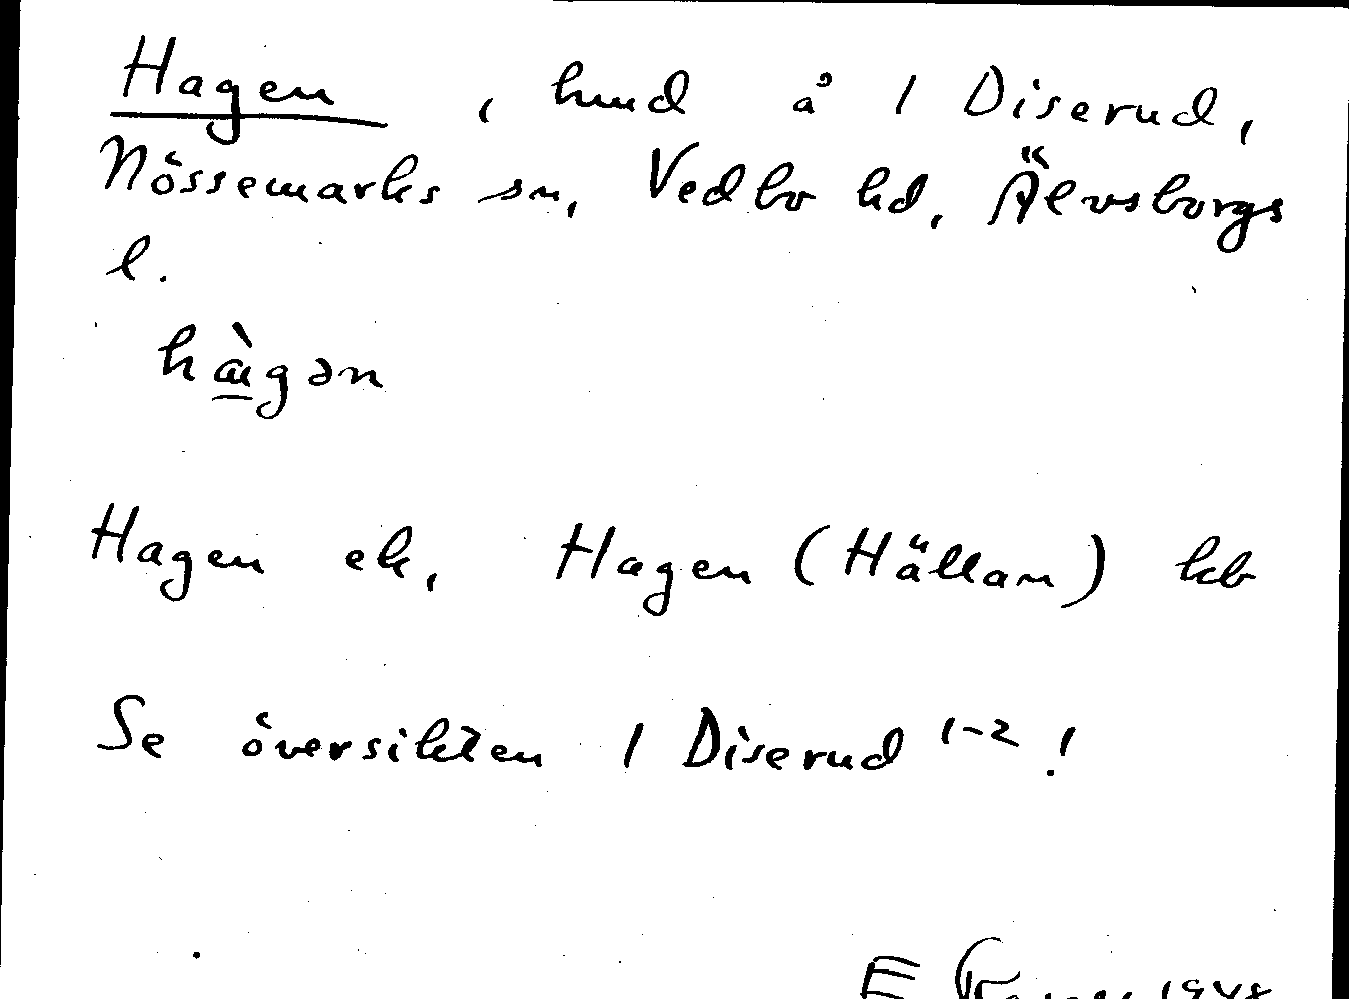 Hagen, hmd å 1 Diserud,
Nössemarks sn, Vedbo hd, Älvsborgs
l.
hàgən
Hagen ek, Hagen (Hällan) kb
Se översikten 1 Diserud 1-2!
E 1948